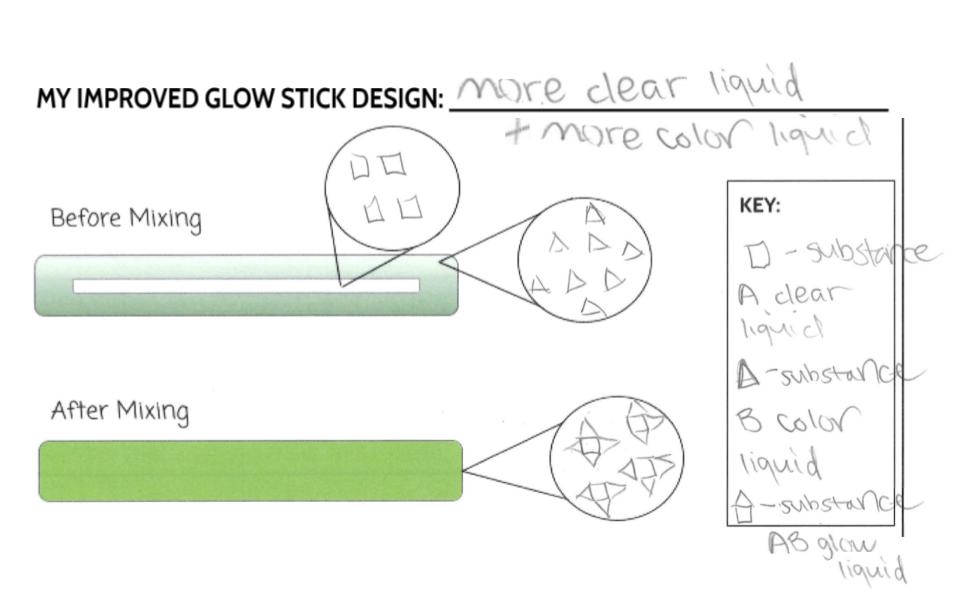 MY IMPROVED GLOW STICK DESIGN: more clear liquid
+ more color liquid
Before Mixing
KEY:
- substance
A clear
liquid
- substance
B color
liquid
- substance
AB glow
liquid
After Mixing